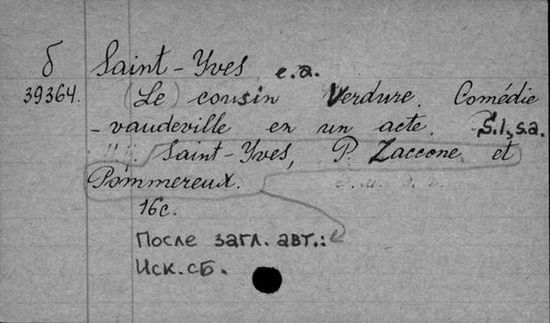 б Saint-Yves e.a.
39364. (Le) cousin Verdure. Comédie
-vaudeville en un acte. S.l., s.a.
Saint-Yves, P. Zaccone et
Pommereux.
16с.
После загл. авт.:
Иск. сб.